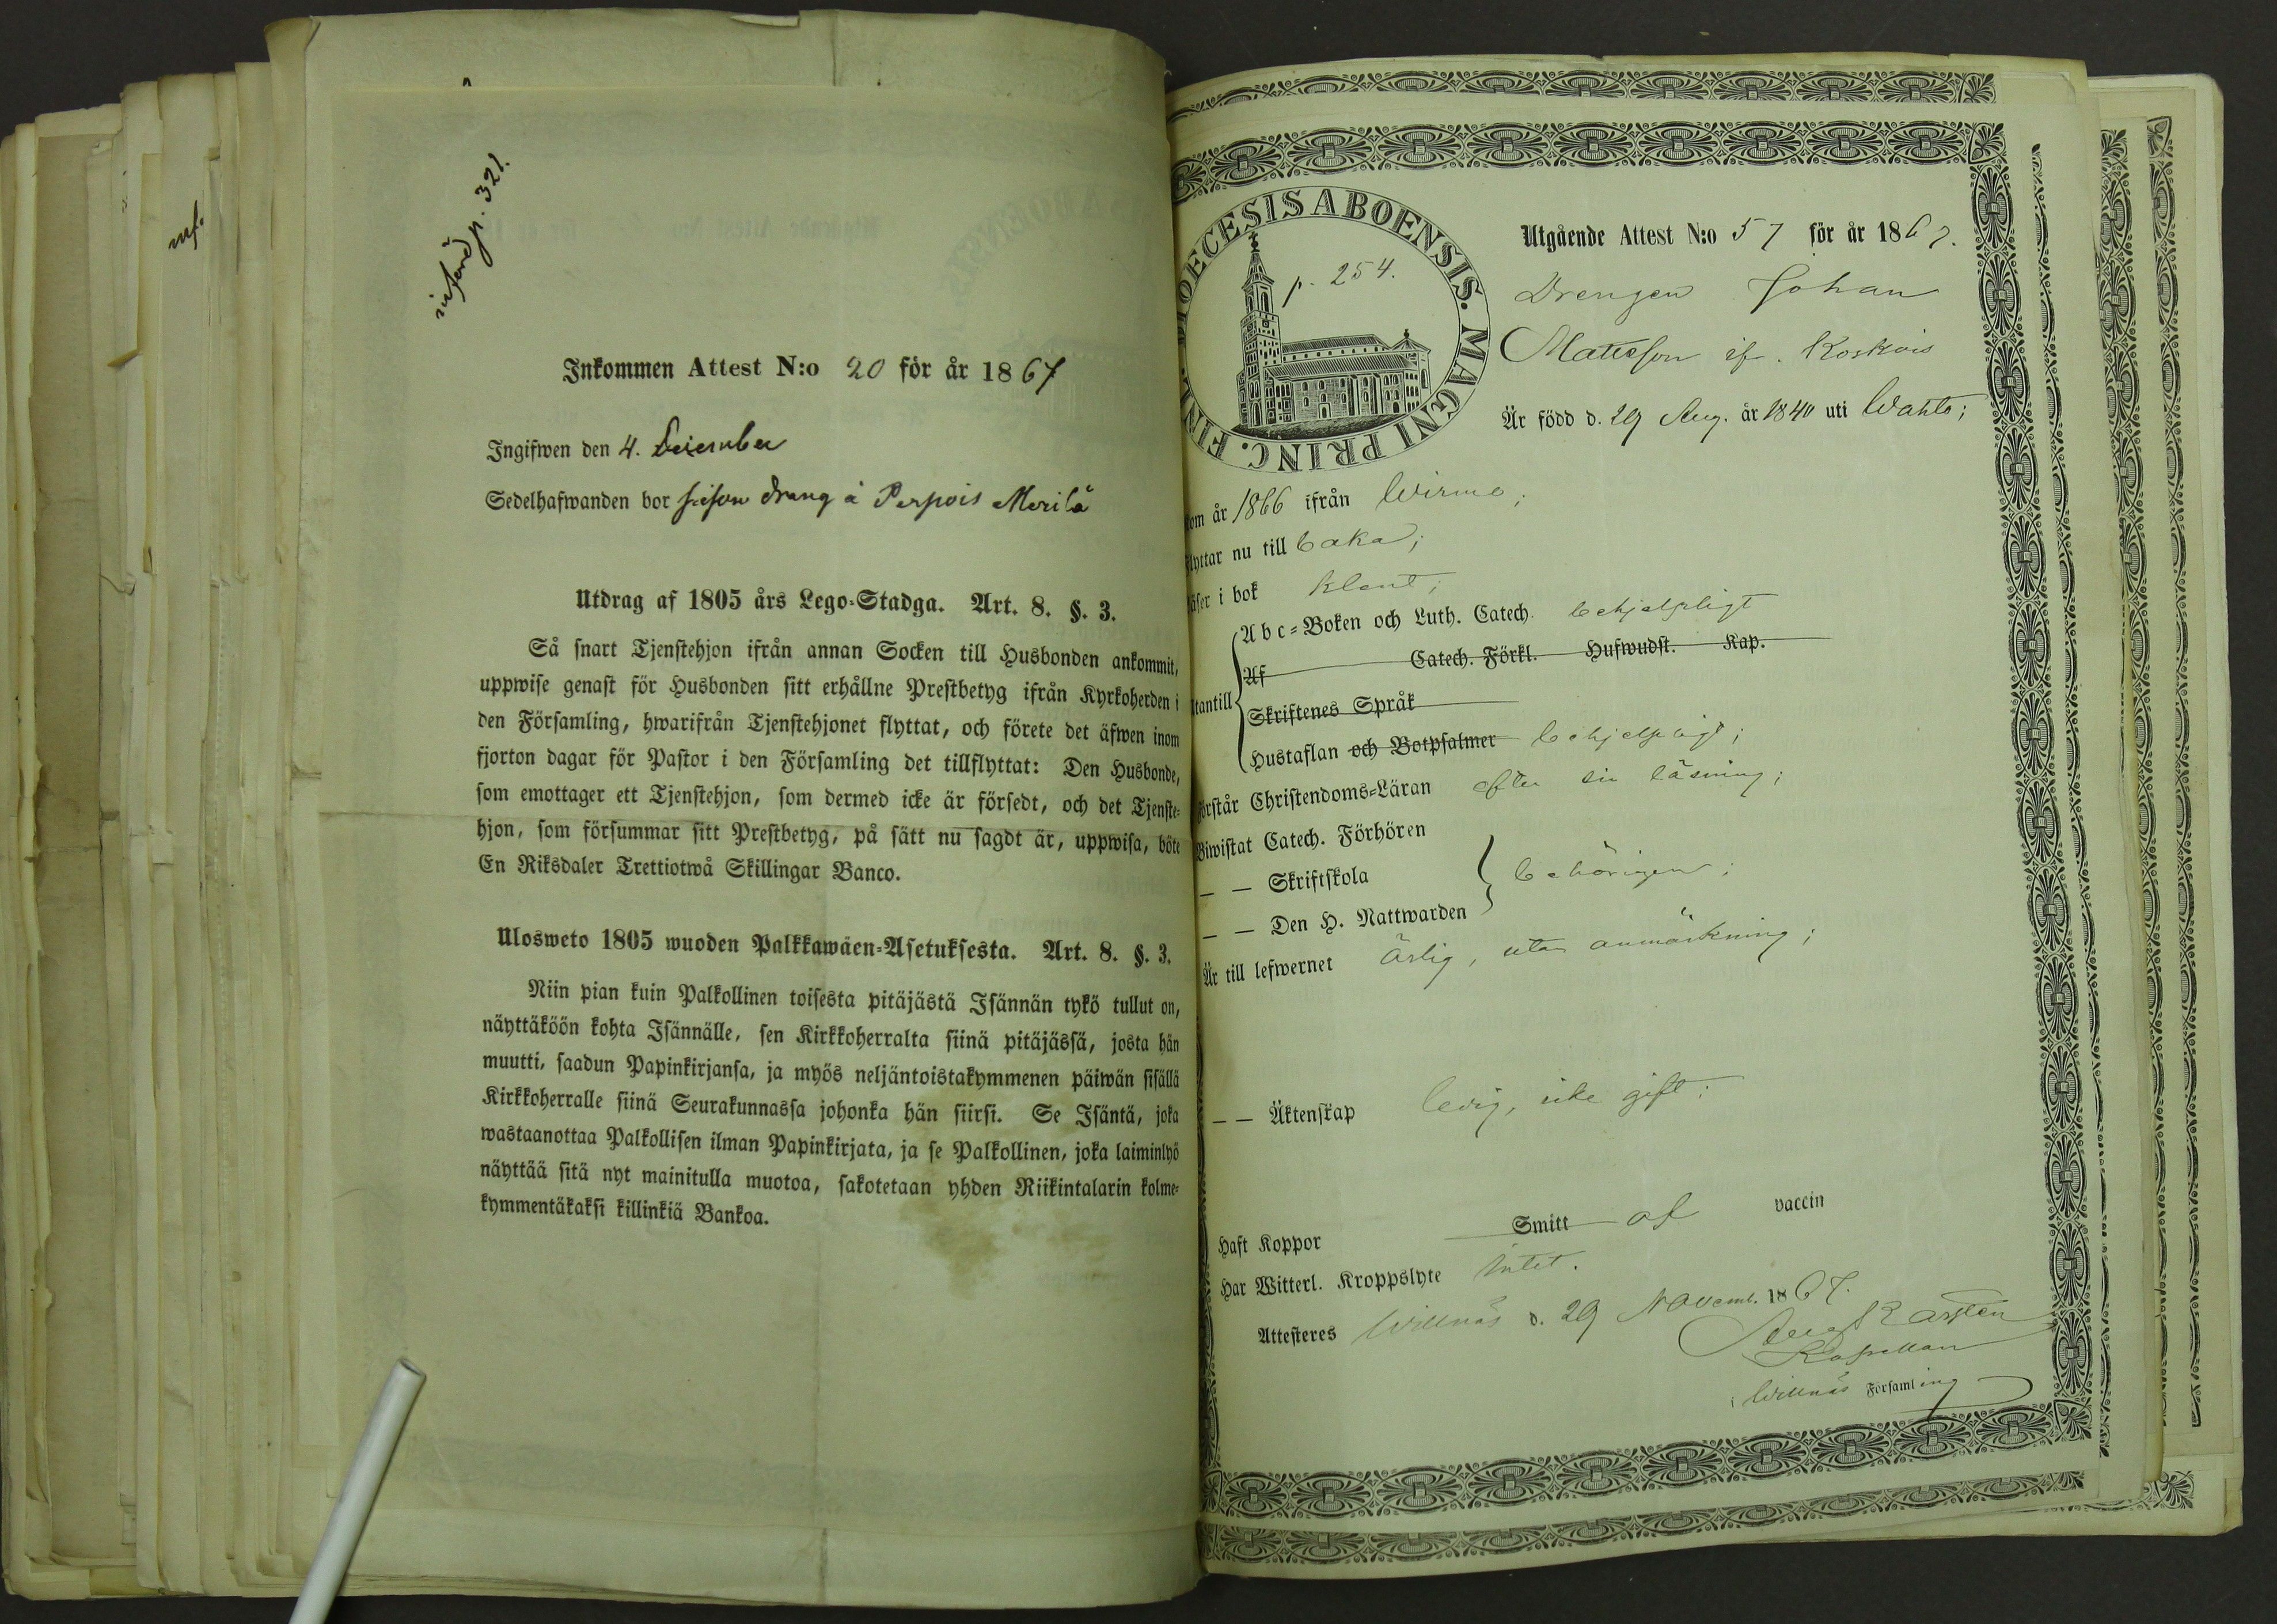 införd p. 321.
Inkommen Attest N:o 20 för år 1867
Ingifwen den 4. December
Sedelhafwanden bor såsom dräng å Perpois Merilä
Utdrag af 1805 års Lego-Stadga. Art. 8. §. 3.
Så snart Tjenstehjon ifrån annan Socken till Husbonden ankommit,
uppwise genast för Husbonden sitt erhållne Prestbetyg ifrån Kyrkoherden i
den Församling, hwarifrån Tjenstehjonet flyttat, och förete det äfwen inom
fjorton dagar för Pastor i den Församling det tillflyttat: Den Husbonde,
som emottager ett Tjenstehjon, som dermed icke är försedt, och det Tjenste-
hjon, som försummar sitt Prestbetyg, på sätt nu sagdt är, uppwisa, böte
En Riksdaler Trettiotwå Skillingar Banco.
Ulosweto 1805 wuoden Palkkawäen-Asetuksesta. Art. 8. §. 3.
Niin pian kuin Palkollinen toisesta pitäjästä Isännän tykö tullut on,
näyttäköön kohta Isännälle, sen Kirkkoherralta siinä pitäjässä, josta hän
muutti, saadun Papinkirjansa, ja myös neljäntoistakymmenen päiwän sisällä
Kirkkoherralle siinä Seurakunnassa johonka hän siirsi. Se Isäntä, joka
wastaanottaa Palkollisen ilman Papinkirjata, ja se Palkollinen, joka laiminlyö
näyttää sitä nyt mainitulla muotoa, sakotetaan yhden Riikintalarin kolme-
kymmentäkaksi killinkiä Bankoa.
DIOECESIS ABOENSIS. MAGNI PRINC. FINL.
p. 254.
Utgående Attest N:o 57 för år 1867.
Drengen Johan
Mattsson if. Koskois
Är född d. 29 Aug. år 1840 uti Wahto;
kom år 1866 ifrån Wirmo;
flyttar nu till baka;
läser i bok klent;
Utantill
Abc-Boken och Luth. Catech. behjelpligt
Af Catech. Förkl. Hufwudst. Kap.
Skriftenes Språk
Hustaflan och Botpsalmer behjelpligt;
Förstår Christendoms-Läran efter sin läsning;
Biwistat Catech. Förhören
— — Skriftskola
behörigen;
— — Den H. Nattwarden
Är till lefwernet ärlig, utan anmärkning;
— — Äktenskap ledig, icke gift;
Haft Koppor Smitt af vaccin
Har Witterl. Kroppslyte intet.
Attesteres Willnäs d. 29 Novemb. 1867.
Aug Karsten
Kapellan
i Willnäs Församling